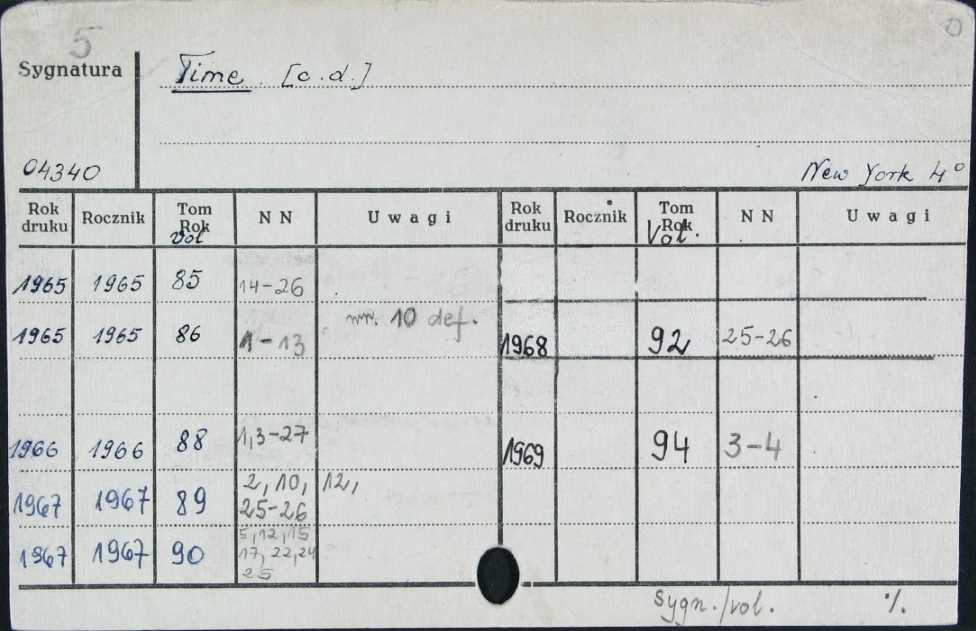 5
Sygnatura
Time [c.d.]
04340
New York 4°
Rok druku Rocznik Tom Rok Vol N N Uwagi Rok druku Rocznik Tom Rok Vol. N N Uwagi
1965 1965 85 14-26
1965 1965 86 1-13 nr. 10 def. 1968 92 25-26
1966 1966 88 1,3-27 1969 94 3-4
1967 1967 89 2, 10, 12,
25-26
1967 1967 90 5,12,15
17, 22,24
25
Sygn./vol. %.